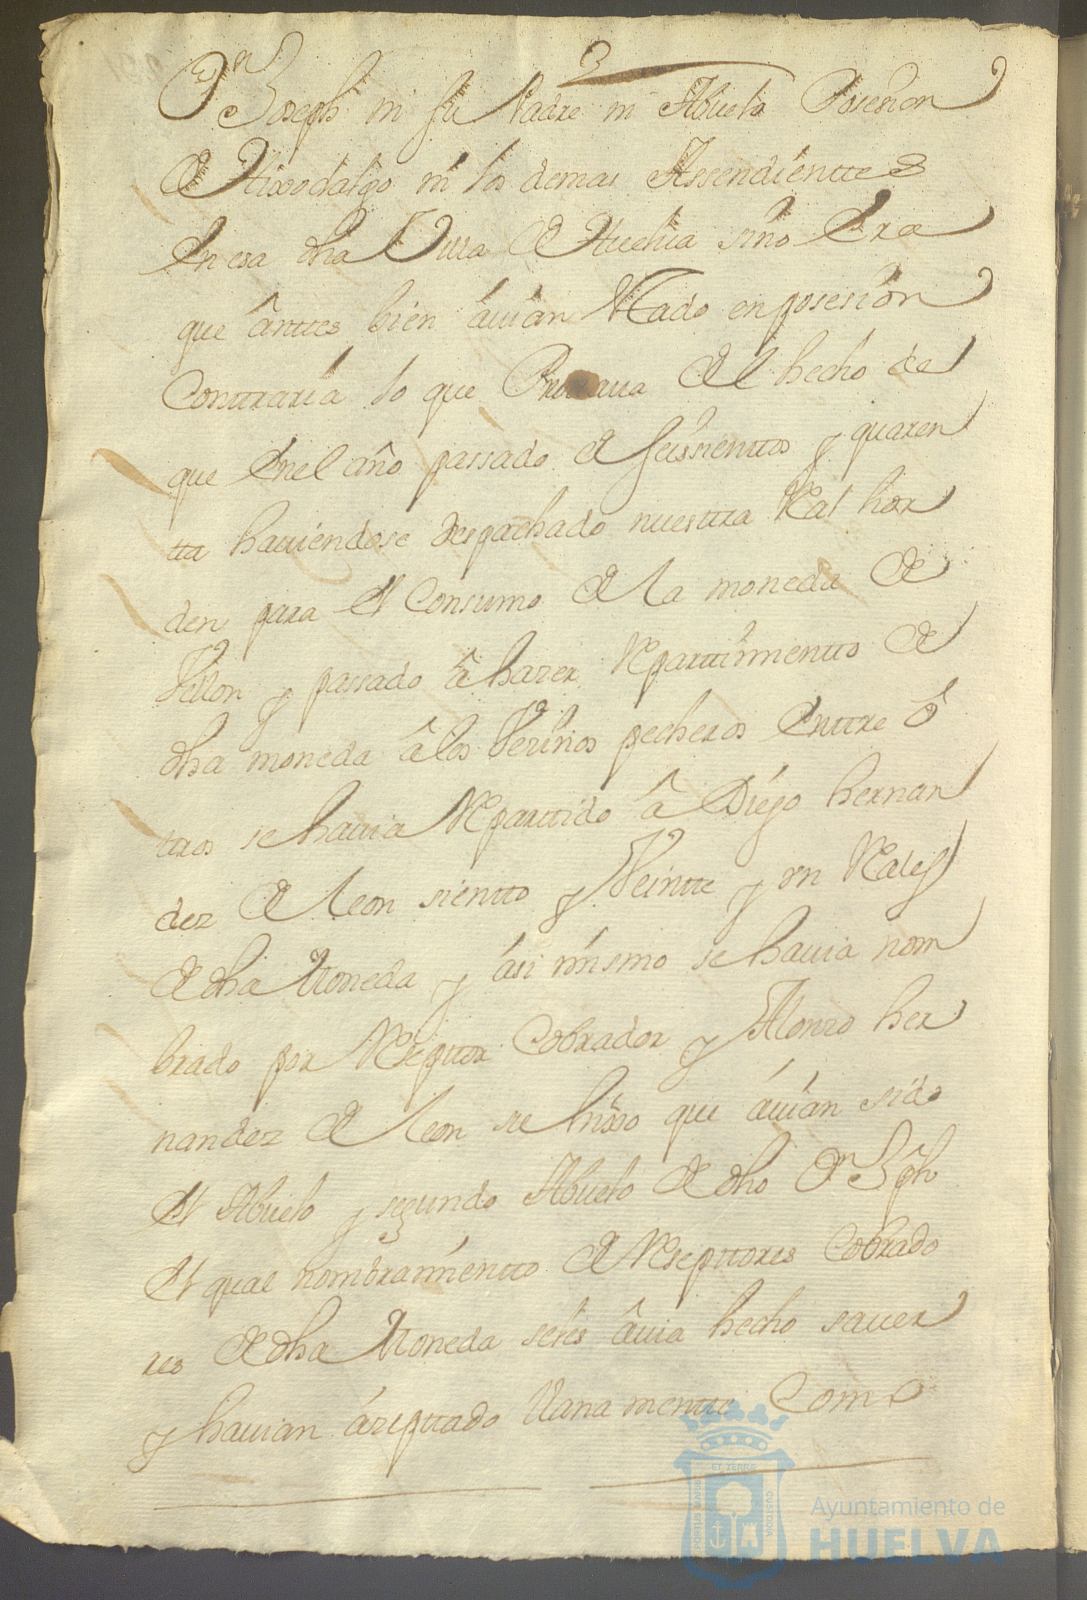 Dn Joseph ni su Padre ni Abuelo Posesion
de Hixodalgo ni los demas Assendienttes
en esa dha Villa de Huelva sino era
que ânttes bien âuian estado en posesion
Conttraria lo que Prouaua el hecho de
que enel año passado de seissienttos y quaren
tta hauiendose despachado nuestra Real hor
den para el Consumo de la moneda de
Vellon y passado â hazer Reparttimientto de
dha moneda â los Vezinos pecheros enttre ô
ttros se hauia Reparttido â Diego hernan
dez de leon sientto y Veintte y un Reales
de dha Moneda y ási mismo se hauia nom
brado por Reseptor Cobrador y Alonzo her
nandez de leon su hijo que áuian sido
el Abuelo y segundo Abuelo de dho Dn Jph
el qual nombramientto de Reseptores Cobrado
res de dha Moneda seles âuia hecho sauer
y hauian ázepttado llanamentte Como
Ayuntamiento de
HUELVA